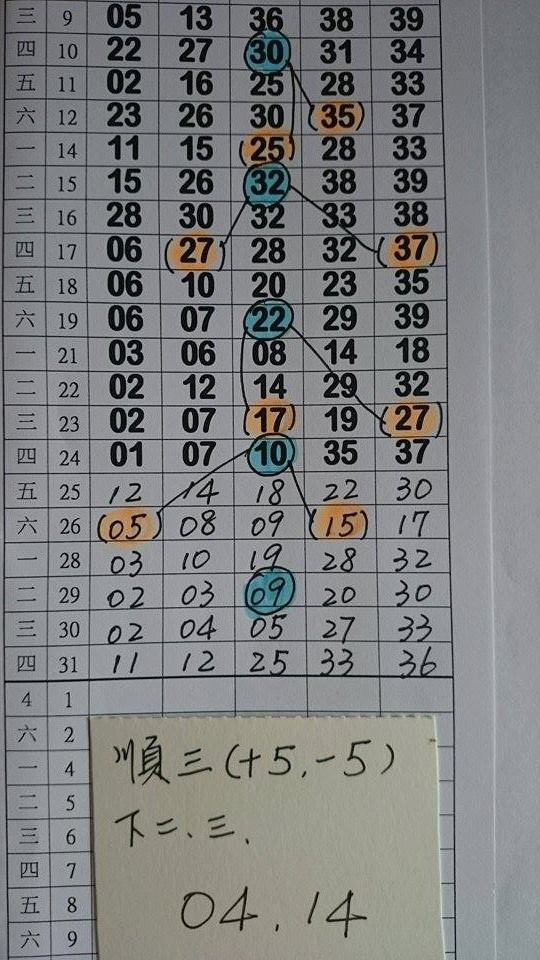 三 9 05 13 36 38 39
四 10 22 27 30 31 34
五 11 02 16 25 28 33
六 12 23 26 30 (35) 37
一 14 11 15 (25) 28 33
二 15 15 26 32 38 39
三 16 28 30 32 33 38
四 17 06 (27) 28 32 (37)
五 18 06 10 20 23 35
六 19 06 07 22 29 39
一 21 03 06 08 14 18
二 22 02 12 14 29 32
三 23 02 07 (17) 19 (27)
四 24 01 07 10 35 37
五 25 12 14 18 22 30
六 26 (05) 08 09 (15) 17
一 28 03 10 19 28 32
二 29 02 03 09 20 30
三 30 02 04 05 27 33
四 31 11 12 25 33 36
4 1
六 2
一 4
二 5
三 6
四 7
五 8
六 9
順三(+5,-5)
下二、三.
04.14